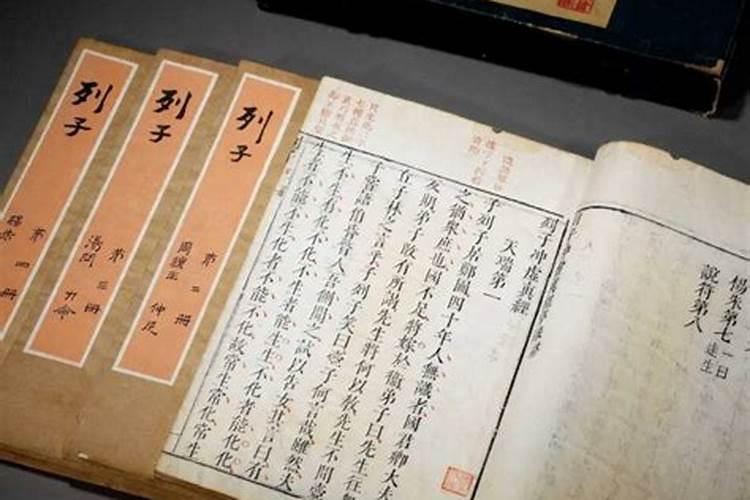 楊朱第七 一曰達生
說符第八
列子冲虛真經
天瑞第一
子列子居鄭圃四十年人無識者國君卿大夫
之猶衆庶也國不足將嫁於衛弟子曰先生往無
反期弟子敢有所謁先生將何以教先生不聞壺
丘子林之言乎子列子笑曰壺子何言哉雖然夫
子嘗語伯昏瞀人吾側聞之試以告女其言曰有
生不生有化不化不生者能生生不化者能化化
生者不能不生化者不能不化故常生常化常生
列子
第二册
周穆王 仲尼
列子
第三册
湯問 力命
列子
第四册